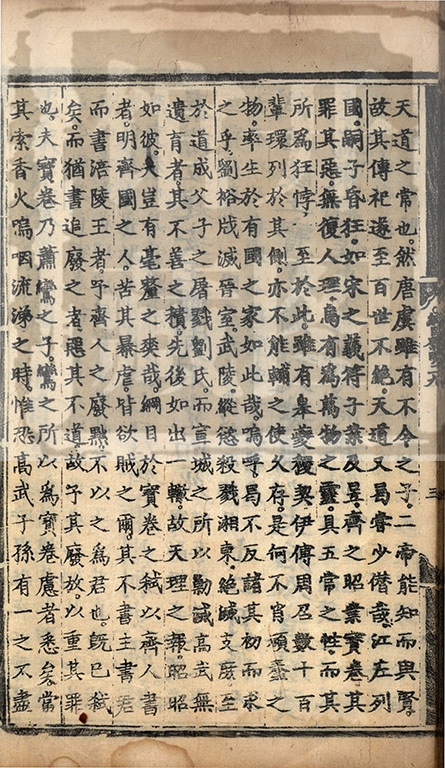 天道之常也然唐虞雖有不令之子二帝能知而與賢
故其傳祀遂至百世不絶天道又曷嘗少僭哉江左列
國嗣子昏狂如宋之義符子業及昱齊之昭業寶卷其
罪其惡無復人理烏有爲萬物之靈具五常之性而其
所爲狂悖至於此雖有皋夔稷契伊傅周召數十百
輩環列於其側亦不能輔之使久存是何不肖頑嚚之
物率生於有國之家如此哉嗚呼曷不反諸其初而求
之乎劉裕戕滅晉室武陵縱慾殺戮湘東絶滅支庶至
於道成父子之屠戮劉氏而宣城之所以勦滅高武無
遺育者其不善之積先後如出一轍故天理之報昭昭
如彼夫豈有毫釐之爽哉綱目於寶卷之弑以齊人書
者明齊國之人苦其暴虐皆欲賊之爾其不書主書君
而書涪陵王者予齊人之廢黜不以之爲君也旣已弑
矣而猶書追廢之者惡其不道故予其廢放以重其罪
也夫寶卷乃蕭鸞之子鸞之所以爲寶卷慮者悉矣常
其索香火嗚咽流涕之時惟恐高武子孫有一之不盡